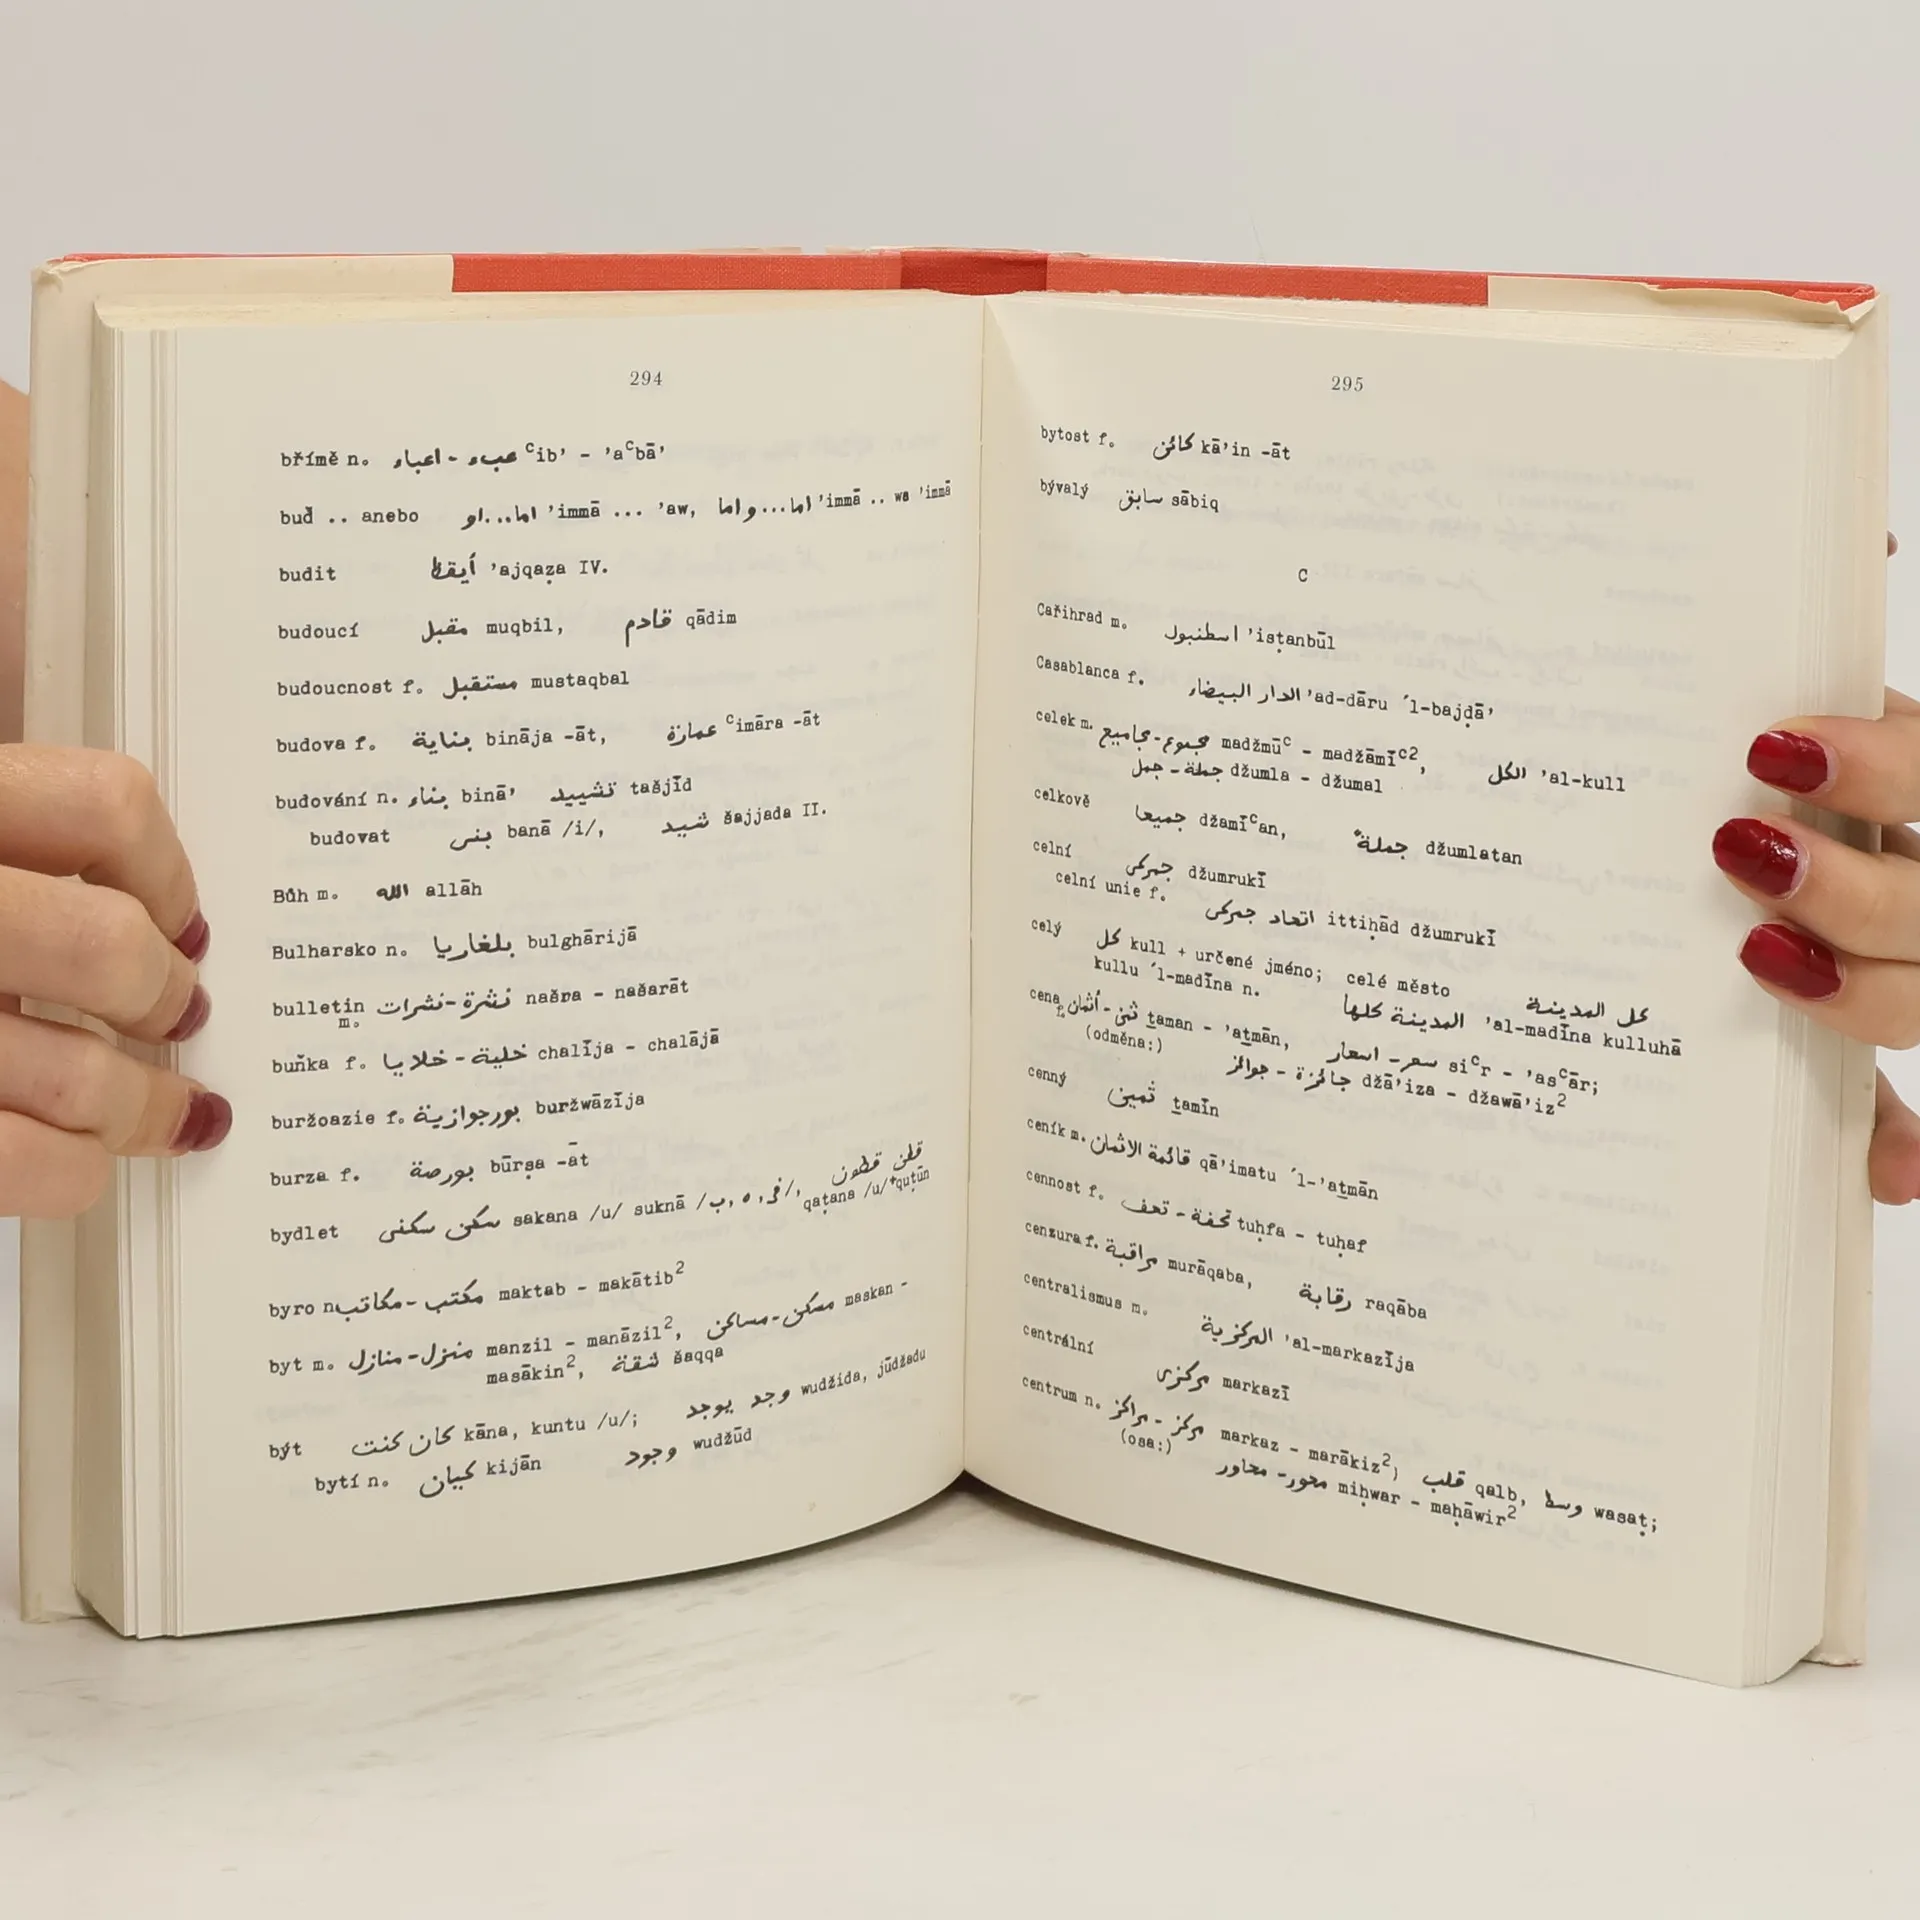 294
břímě n. عبء - اعباء ᶜib' - 'aᶜbā'
buď .. anebo اما...او 'immā ... 'aw, اما...و اما 'immā .. wa 'immā
budit أيقظ 'ajqaẓa IV.
budoucí مقبل muqbil, قادم qādim
budoucnost f. مستقبل mustaqbal
budova f. بناية bināja -āt, عمارة ᶜimāra -āt
budování n. بناء binā' تشييد tašjīd
budovat بنى banā /i/, شيد šajjada II.
Bůh m. الله allāh
Bulharsko n. بلغاريا bulghārijā
bulletin m. نشرة-نشرات našra - našarāt
buňka f. خلية - خلايا chalīja - chalājā
buržoazie f. بورجوازية buržwāzīja
burza f. بورصة būrṣa -āt
bydlet سكن سكنى sakana /u/ suknā /ب, ه, فى/, قطن قطون qaṭana /u/ quṭūn
byro n. مكتب-مكاتب maktab - makātib²
byt m. منزل-منازل manzil - manāzil², مسكن-مساكن maskan -
masākin², شقة šaqqa
být كان كنت kāna, kuntu /u/; وجد يوجد wudžida, jūdžadu
bytí n. كيان kijān وجود wudžūd
295
bytost f. كائن kā'in -āt
bývalý سابق sābiq
C
Cařihrad m. اسطنبول 'isṭanbūl
Casablanca f. الدار البيضاء 'ad-dāru ´l-bajḍā'
celek m. مجموع-مجاميع madžmūᶜ - madžāmīᶜ², الكل 'al-kull
جملة - جمل džumla - džumal
celkově جميعا džamīᶜan, جملةً džumlatan
celní جمركى džumrukī
celní unie f. اتحاد جمركى ittiḥād džumrukī
celý كل kull + určené jméno; celé město كل المدينة
kullu ´l-madīna n. المدينة كلها 'al-madīna kulluhā
cena f. ثمن - أثمان ṯaman - 'aṯmān, سعر - اسعار siᶜr - 'asᶜār;
(odměna:) جائزة - جوائز džā'iza - džawā'iz²
cenný ثمين ṯamīn
ceník m. قائمة الاثمان qā'imatu ´l-'aṯmān
cennost f. تحفة - تحف tuḥfa - tuḥaf
cenzura f. مراقبة murāqaba, رقابة raqāba
centralismus m. المركزية 'al-markazīja
centrální مركزى markazī
centrum n. مركز - مراكز markaz - marākiz²; قلب qalb, وسط wasaṭ;
(osa:) محور - محاور miḥwar - maḥāwir²